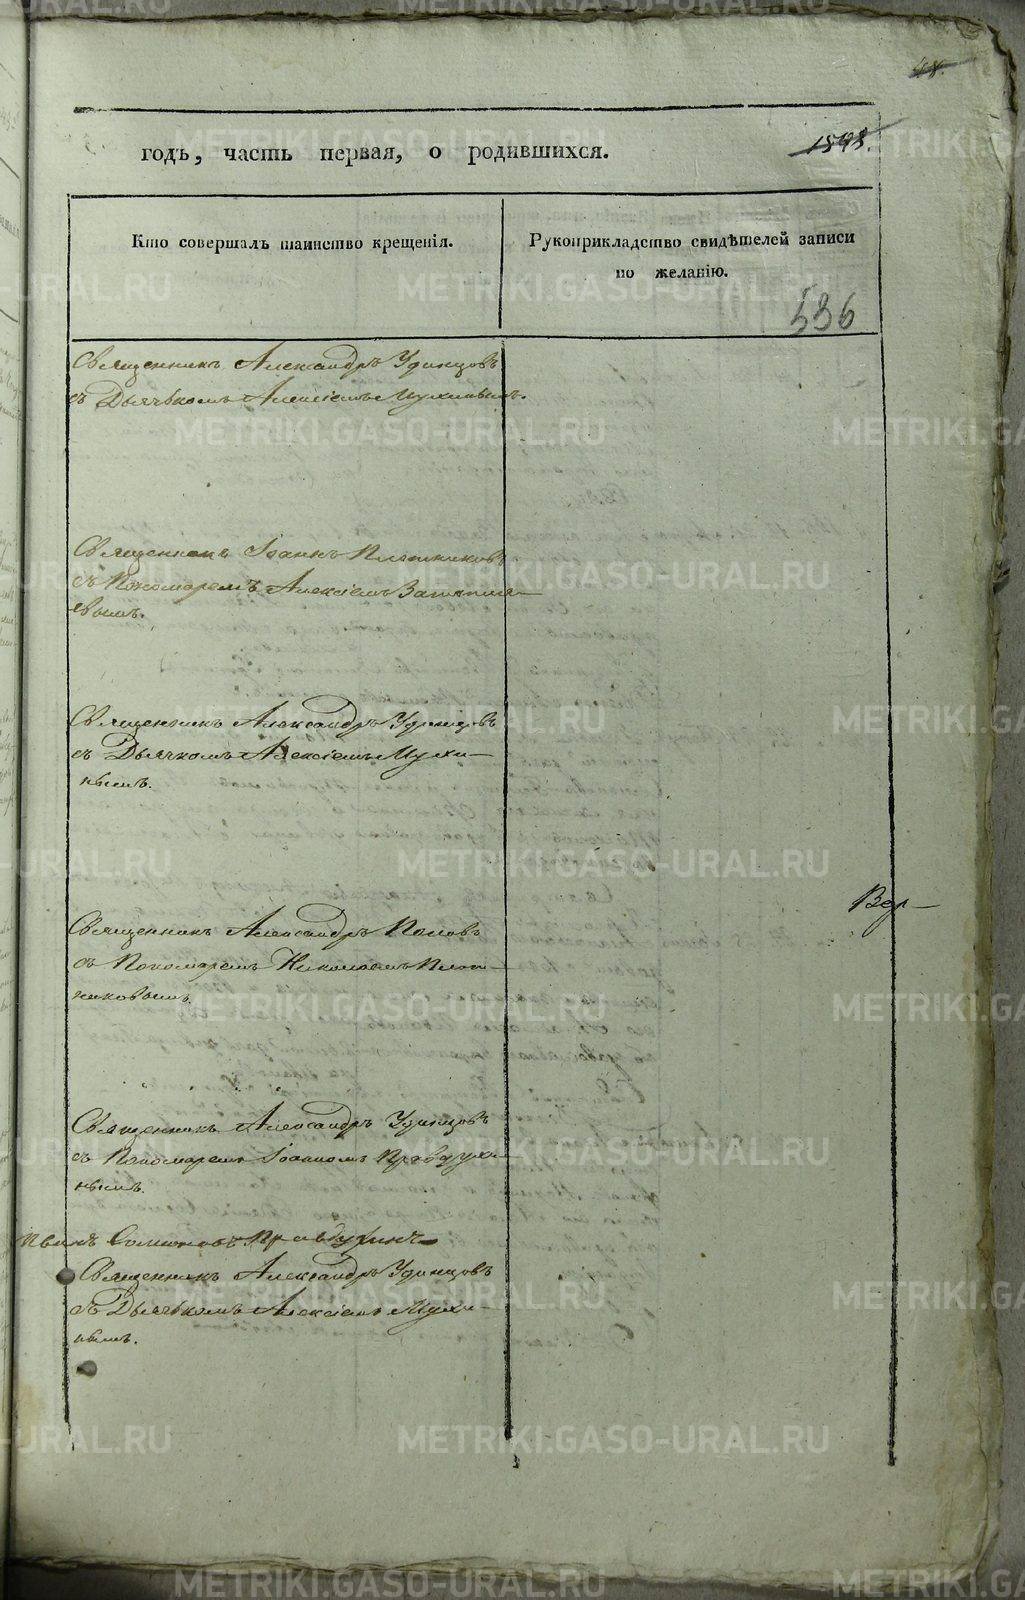 48.
1898.
годъ, часть первая, о родившихся.
Кто совершалъ таинство крещенія.
Рукоприкладство свидѣтелей записи
по желанію.
536
Священникъ Александръ Удинцовъ
съ Дьячкомъ Алексіемъ Мухинымъ.
Священникъ Іоаннъ Плотниковъ
съ Пономаремъ Алексіемъ
вымъ.
Священникъ Александръ Удинцовъ
съ Дьячкомъ Алексіемъ Мухи-
нымъ.
Вер-
Священникъ Александръ Поповъ
съ Пономаремъ Николаемъ Плот-
никовымъ.
Священникъ Александръ Удинцовъ
съ Пономаремъ Іоанномъ Правдухи-
нымъ.
Правдухинъ
Священникъ Александръ Удинцовъ
съ Дьячкомъ Алексіемъ Мухи-
нымъ.
METRIKI.GASO-URAL.RU